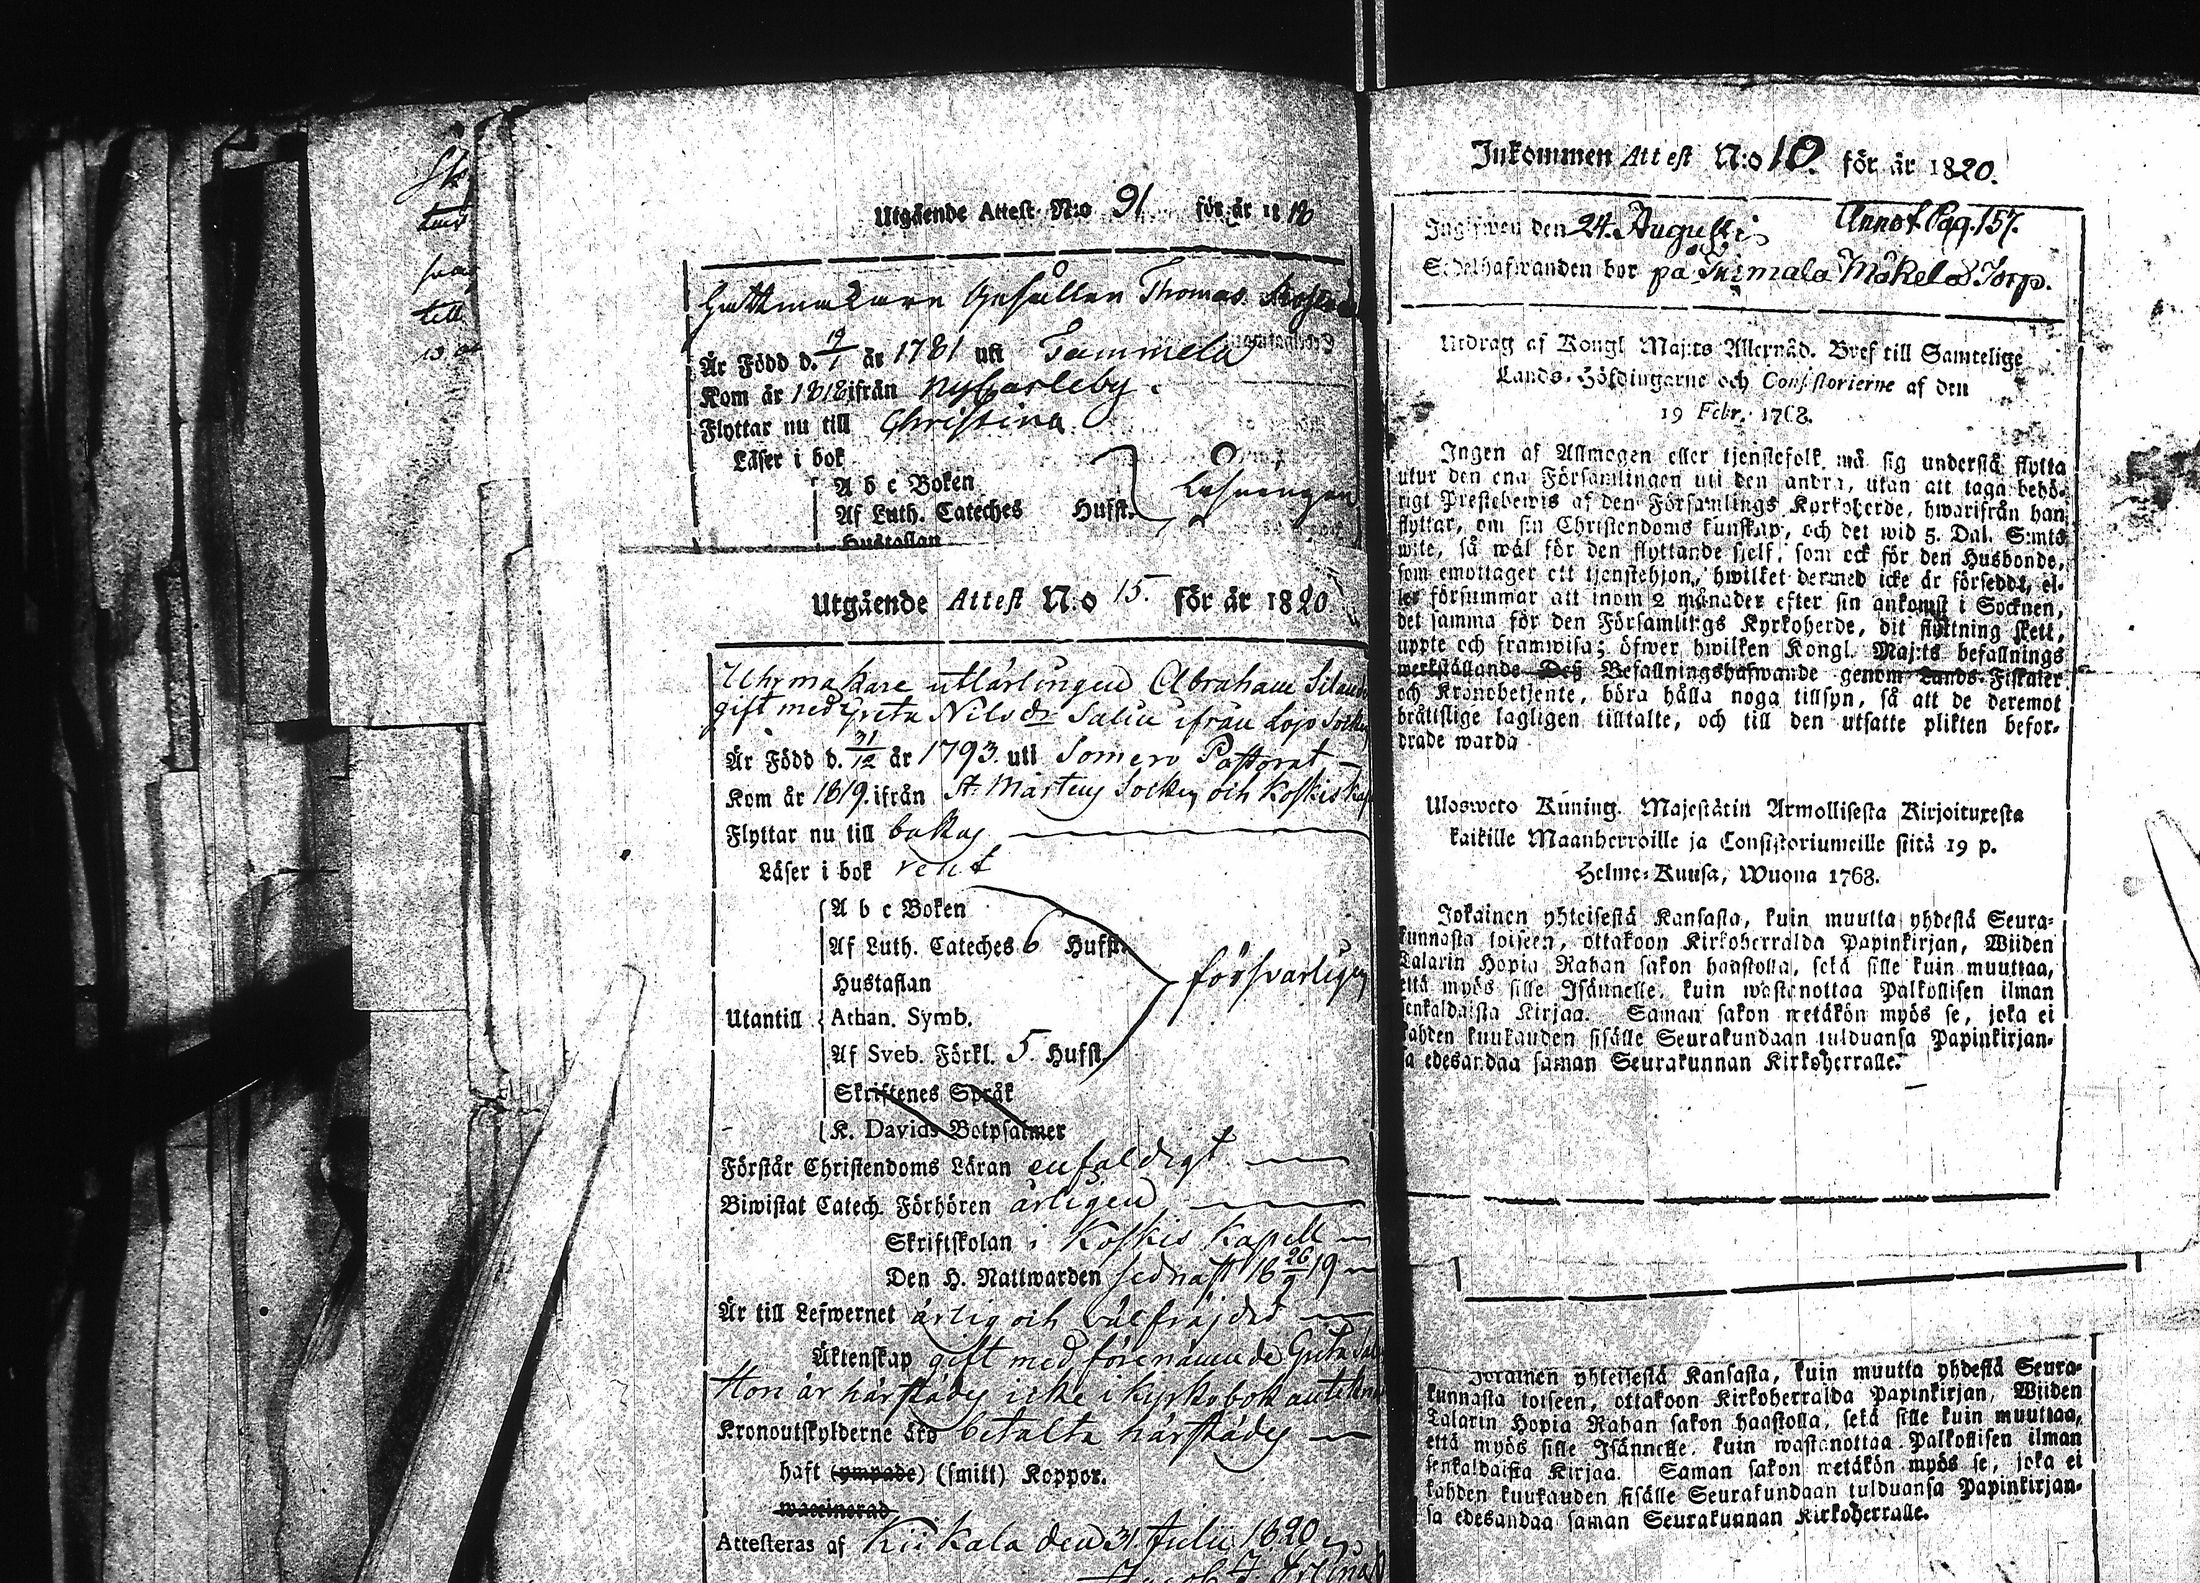 Utgående Attest. N:o 91 för år 1818
Gesällen Thomas
Är Född d. 19/1 år 1781 uti Tammela
Kom år 1818 ifrån NyCarleby.
Flyttar nu till Christina
Läser i bok
A b c Boken
Af Luth. Cateches Hufst.
Läsningen
Hustaflan
Utgående Attest N:o 15. för år 1820.
Uhrmakare utlärlingen Abraham
gift med Greta Nilsdr Salin ifrån Lojo
Är Född d. 31/12 år 1793. uti Somero Pastorat
Kom år 1819. ifrån St. Mårtens Socken och Koskis
Flyttar nu till bakas
Läser i bok rent
A b c Boken
Af Luth. Cateches 6 Hufst.
Hustaflan
försvarligen
Utantill Athan. Symb.
Af Sveb. Förkl. 5. Hufst.
Skriftenes Språk
K. Davids Botpsalmer
Förstår Christendoms Läran enfaldigt
Biwistat Catech. Förhören årligen
Skriftskolan i Koskis Kapell
Den H. Nattwarden sednast 18 26/9 19
Är till Lefwernet ärlig och välfräjdad
Äktenskap gift med förenämnde Greta
Hon är härstädes icke i Kyrkobok
Kronoutskylderne äro betalta härstädes
haft (ympade) (smitt) Koppor.
waccinerad
Attesteras af Kiikala den 31. Julii 1820
Inkommen Attest N:o 10. för år 1820.
Ingifwen den 24. Augusti Annot. Pag. 157.
Sedelhafwanden bor på Mäkelä Torp.
Utdrag af Kongl Maj:ts Allernåd. Bref till Samtelige
Lands-Höfdingarne och Consistorierne af den
19 Febr. 1768.
Ingen af Allmogen eller tjenstefolk må sig understå flytta
utur den ena Församlingen uti den andra, utan att taga behö-
rigt Prestebewis af den Församlings Kyrkoherde, hwarifrån han
flyttar, om sin Christendoms kunskap, och det wid 5. Dal. S:mts
wite, så wäl för den flyttande sjelf, som ock för den Husbonde,
som emottager ett tjenstehjon, hwilket dermed icke är försedt, el-
ler försummar att inom 2 månader efter sin ankomst i Socknen,
det samma för den Församlings Kyrkoherde, dit flyttning skett,
uppte och framwisa; öfwer hwilken Kongl. Maj:ts befallnings
werkställande Deß Befallningshafwande genom Lands-Fiskaler
och Kronobetjente, böra hålla noga tillsyn, så att de deremot
bråttslige lagligen tilltalte, och till den utsatte plikten befor-
drade warda
Ulosweto Kuning. Majestätin Armollisesta Kirjoituxesta
kaikille Maanherroille ja Consistoriumeille siitä 19 p.
Helme-Kuusa, Wuona 1768.
Jokainen yhteisestä Kansasta, kuin muutta yhdestä Seura-
kunnasta toiseen, ottakoon Kirkoherralda Papinkirjan, Wiiden
Talarin Hopia Rahan sakon haastolla, sekä sille kuin muuttaa,
että myös sille Isännelle, kuin wastanottaa Palkollisen ilman
senkaldaista Kirjaa. Saman sakon wetäkön myös se, joka ei
kahden kuukauden sisälle Seurakundaan tulduansa Papinkirjan-
sa edesandaa saman Seurakunnan Kirkoherralle.
Jokainen yhteisestä Kansasta, kuin muutta yhdestä Seura-
kunnasta toiseen, ottakoon Kirkoherralda Papinkirjan, Wiiden
Talarin Hopia Rahan sakon haastolla, sekä sille kuin muuttaa,
että myös sille Isännelle, kuin wastanottaa Palkollisen ilman
senkaldaista Kirjaa. Saman sakon wetäkön myös se, joka ei
kahden kuukauden sisälle Seurakundaan tulduansa Papinkirjan-
sa edesandaa saman Seurakunnan Kirkoherralle.